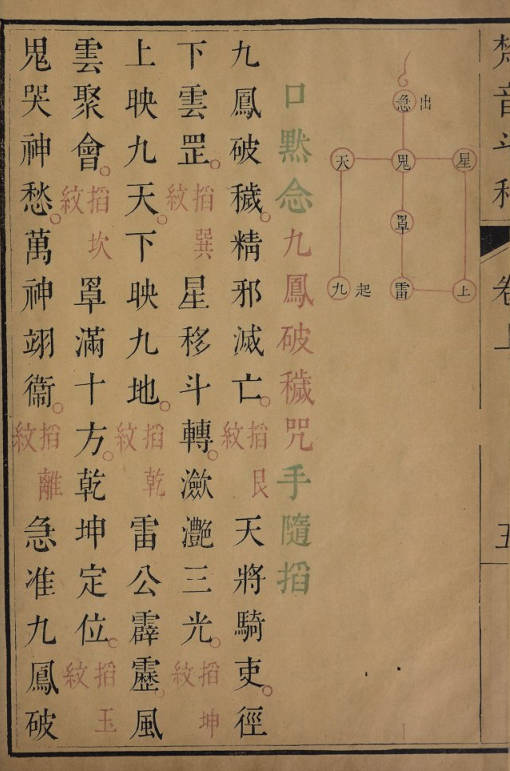 梵音斗科
卷上
五
急 出
天 鬼 星
罩
九 起 雷 上
口默念九鳳破穢咒手隨搯
九鳳破穢。精邪滅亡。搯艮紋 天將騎吏。徑
下雲罡。搯巽紋 星移斗轉。瀲灧三光。搯坤紋
上映九天。下映九地。搯乾紋 雷公霹靂。風
雲聚會。搯坎紋 罩滿十方。乾坤定位。搯玉紋
鬼哭神愁。萬神翊衞。搯離紋 急准九鳳破